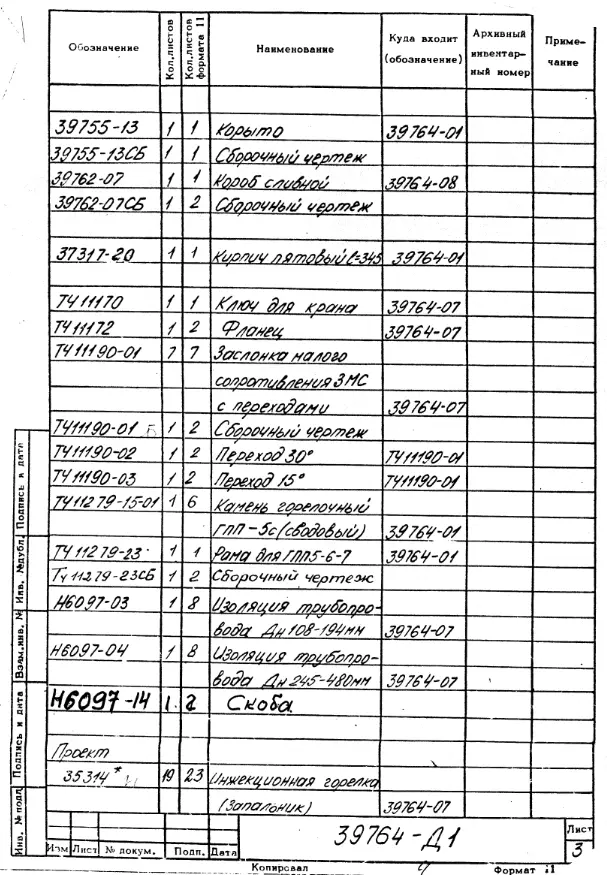 Обозначение Кол.листов Кол.листов формата 11 Наименование Куда входит (обозначение) Архивный инвентар-ный номер Приме-чание
39755-13 1 1 Корыто 39764-01
39755-13СБ 1 1 Сборочный чертеж
39762-07 1 1 Короб сливной 39764-08
39762-07СБ 1 2 Сборочный чертеж
37317-20 1 1 Кирпич пятовый ℓ=345 39764-01
ТЧ11170 1 1 Ключ для крана 39764-07
ТЧ11172 1 2 Фланец 39764-07
ТЧ11190-01 7 7 Заслонка малого
сопротивления ЗМС
с переходами 39764-07
ТЧ11190-01 Б 1 2 Сборочный чертеж
ТЧ11190-02 1 2 Переход 30° ТЧ11190-01
ТЧ11190-03 1 2 Переход 15° ТЧ11190-01
ТЧ11279-15-01 1 6 Камень горелочный
ГПП-5с(сводовый) 39764-01
ТЧ11279-23 1 1 Рама для ГПП5-6-7 39764-01
Тч11279-23СБ 1 2 Сборочный чертеж
Н6097-03 1 8 Изоляция трубопро-
вода Дн108-194мм 39764-07
Н6097-04 1 8 Изоляция трубопро-
вода Дн245-480мм 39764-07
Н6097-14 1 2 Скоба
Проект
35314* 19 23 Инжекционная горелка
(Запальник) 39764-07
Инв. № подл Подпись и дата Взам.инв. № Инв. №дубл. Подпись и дата
39764-Д1
Лист
3
Изм Лист № докум. Подп. Дата
Копировал Формат 11